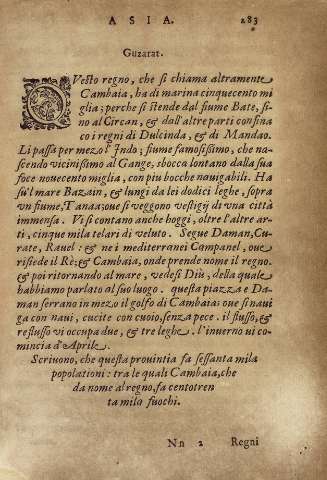 ASIA. 283
Guzarat.
QVesto regno, che si chiama altramente
Cambaia, ha di marina cinquecento mi
glia; perche si stende dal fiume Bate, si-
no al Circan, & dall'altre parti confina
co i regni di Dulcinda, & di Mandao.
Li passa per mezo l'Indo; fiume famosissimo, che na-
scendo vicinissimo al Gange, sbocca lontano dalla sua
foce nouecento miglia, con piu bocche nauigabili. Ha
su'l mare Bazain, & lungi da lei dodici leghe, sopra
vn fiume, Tanaa; oue si veggono vestigij di vna città
immensa. Vi si contano anche hoggi, oltre l'altre ar-
ti, cinque mila telari di veluto. Segue Daman, Cu-
rate, Rauel: & ne i mediterranei Campanel, oue
risiede il Rè; & Cambaia, onde prende nome il regno.
& poi ritornando al mare, vedesi Diù, della quale
habbiamo parlato al suo luogo. questa piazza e Da-
man serrano in mezo il golfo di Cambaia: oue si naui
ga con naui, cucite con cuoio, senza pece. il flusso, &
reflusso vi occupa due, & tre leghe. l'inuerno ui co-
mincia d'Aprile.
Scriuono, che questa prouintia fa sessanta mila
popolationi: tra le quali Cambaia, che
da nome al regno, fa centotren
ta mila fuochi.
Nn 2 Regni